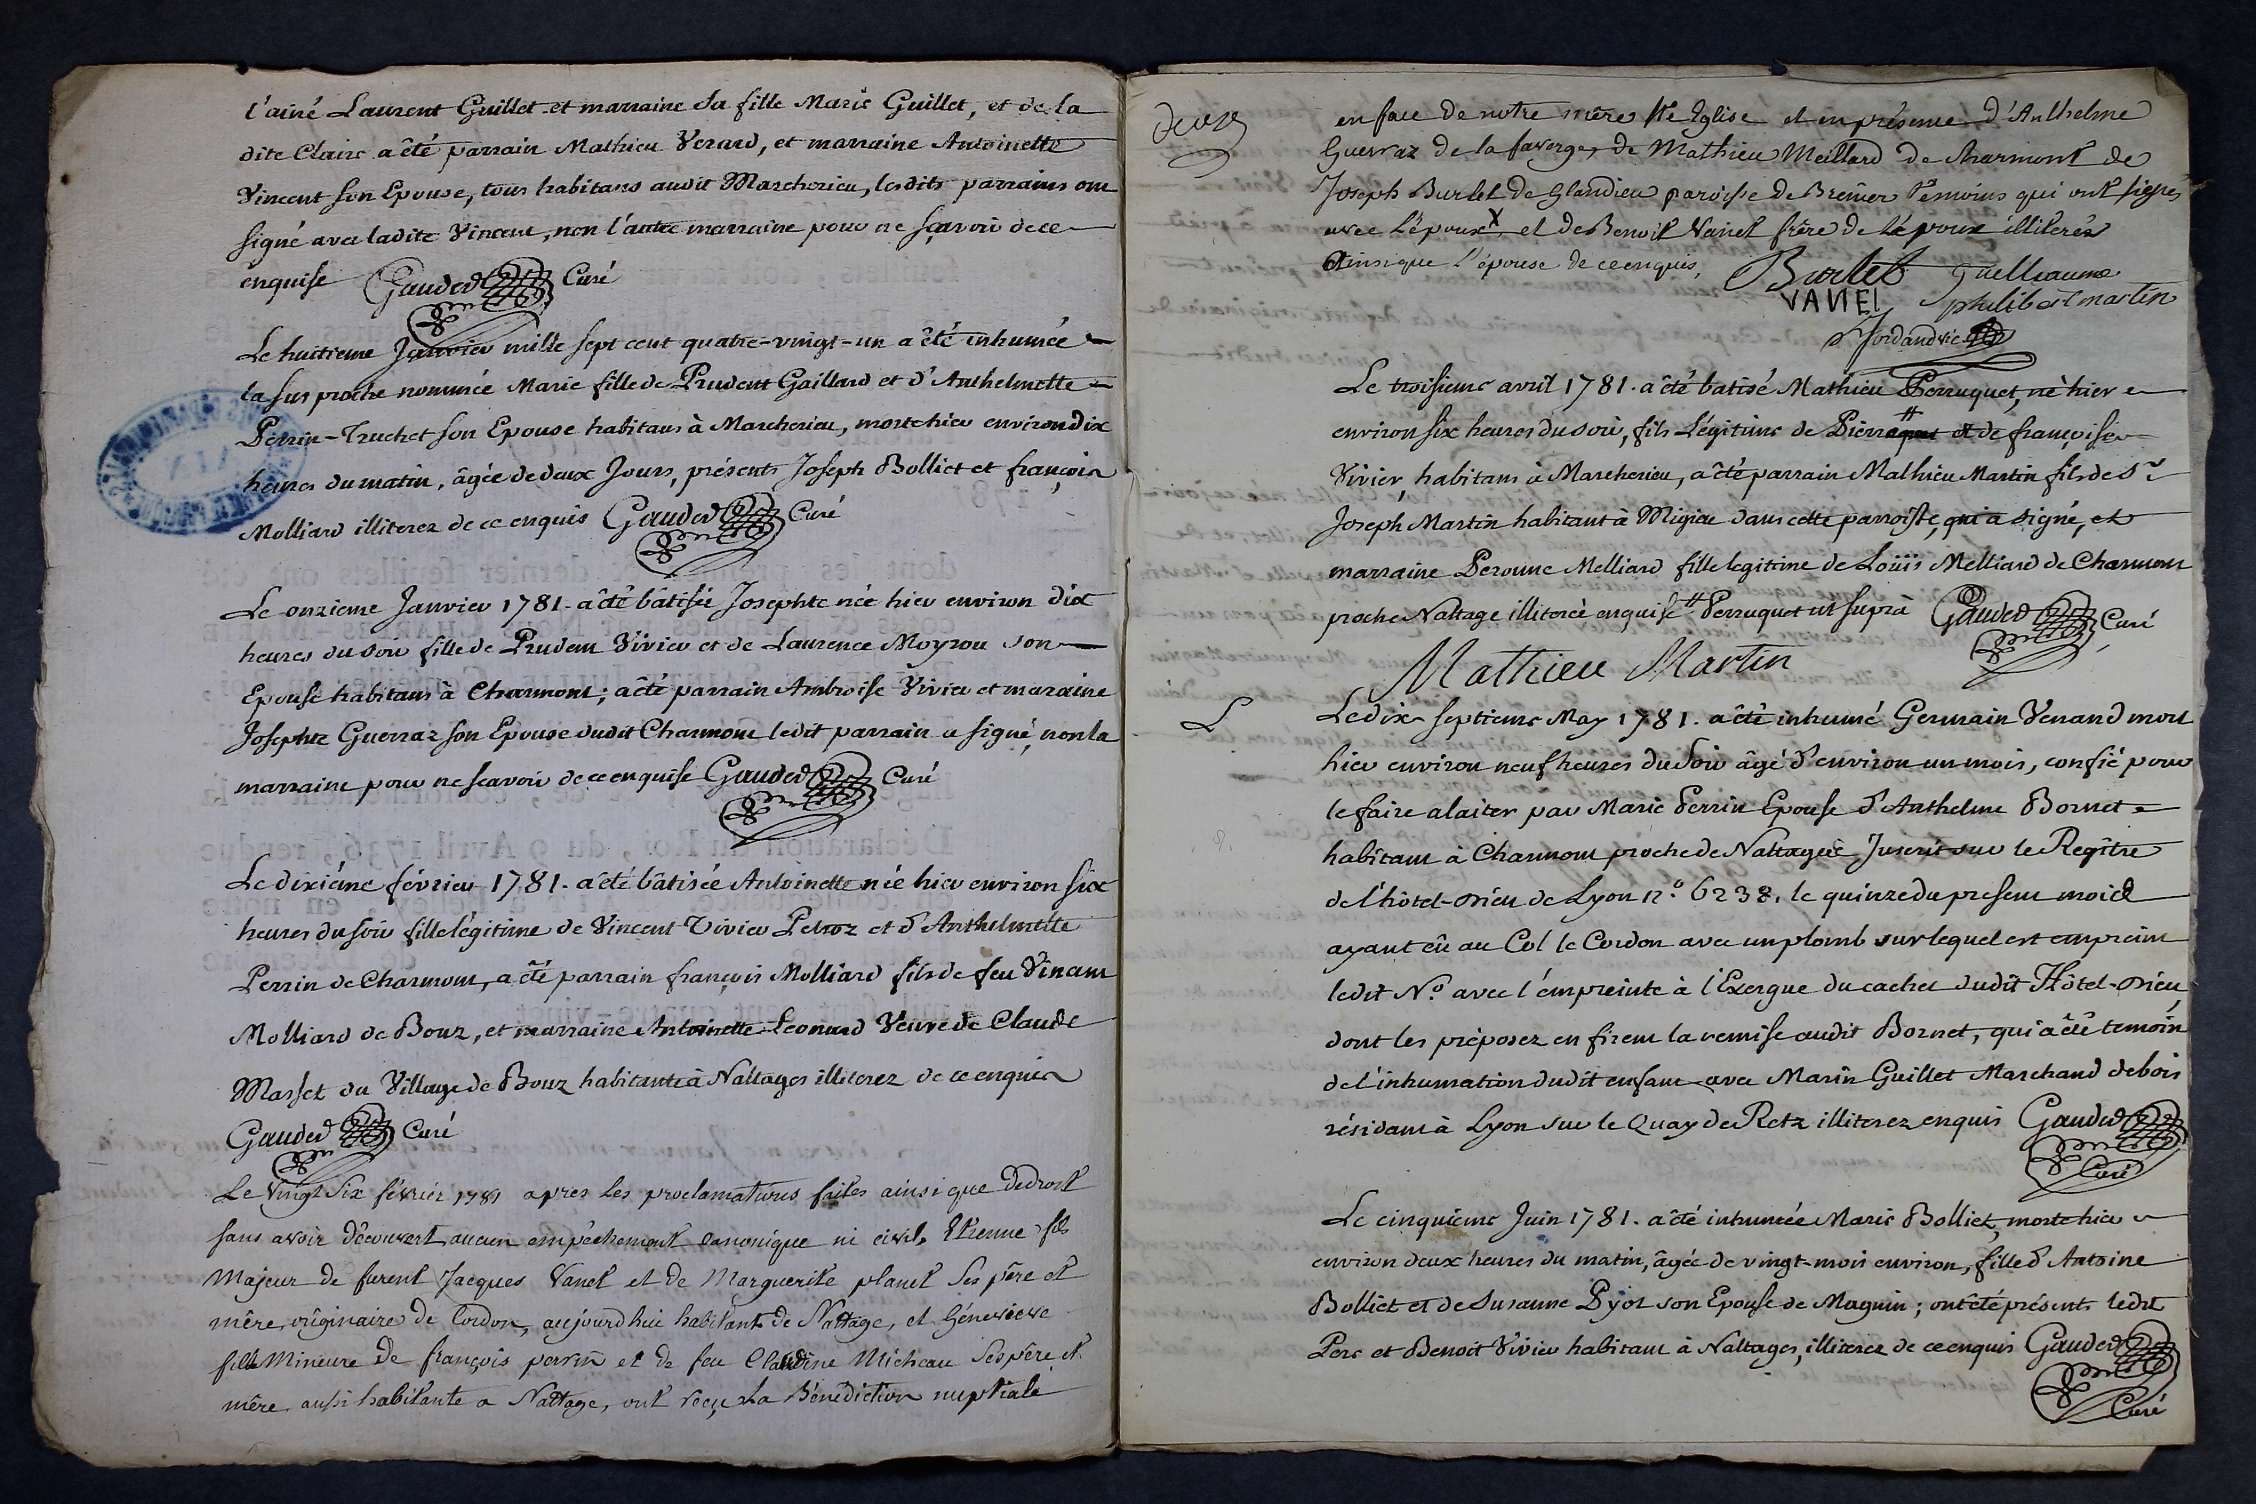 l'ainé Laurent Guillet et marraine sa fille Marie Guillet, et de la
dite Claire a été parrain Mathieu Verard, et marraine Antoinette
Vincent son Epouse, tous habitans audit Marcherieu, lesdits parrains ont
signé avec ladite Vincent, non l'autre marraine pour ne sçavoir de ce
enquise Gauded Curé
Le huitieme Janvier mille sept cent quatre-vingt-un a été inhumée
la sus proche nommée Marie fille de Prudent Gaillard et d'Anthelmette
Perrin-Truchet son Epouse habitans à Marcherieu, morte hier environ dix
heures du matin, âgée de deux Jours, présents Joseph Bolliet et françois
Molliard illiterez de ce enquis Gauded Curé
Le onzieme Janvier 1781. a été bâtisée Josephte née hier environ dix
heures du soir fille de Prudent Vivier et de Laurence Moyrou son
Epouse habitans à Charmont; a été parrain Ambroise Vivier et maraine
Josephte Guerraz son Epouse dudit Charmont ledit parrain a signé, non la
marraine pour ne scavoir de ce enquise Gauded Curé
Le dixiéme février 1781. a été bâtisée Antoinette née hier environ six
heures du soir fille légitime de Vincent Vivier Petroz et d'Anthelmette
Perrin de Charmont, a été parrain françois Molliard fils de feu Vincent
Molliard de Bouz, et marraine Antoinette Leonard Veuve de Claude
Masset du Village de Bouz habitante à Nattages illiterez de ce enquis
Gauded Curé
Le Vingt Six février 1781 apres les proclamations faites ainsi que de droit
sans avoir découvert aucun empéchement canonique ni civil, Etienne fils
Majeur de furent Jacques Vanet et de Marguerite planet Ses père et
mère, originaire de Cordon, aujourdhui habitant de Nattage, et Génevieve
fille Mineure de françois perrin et de feu Claudine Micheau Ses père et
mère aussi habitante a Nattage, ont reçu La Bénédiction nuptiale
en face de notre mère Ste Eglise et en présence d'Anthelme
Guerraz de la faverge, de Mathieu Meillard de Charmont de
Joseph Burlet de Glandieu paroisse de Bremier témoins qui ont signés
avec l'époux X et de Benoit Vanet frère de l'époux illiterés
Ainsi que L'épouse de ce enquis,
Burlet Guilliaume
VANEL philibert martin
Jordand vic
Le troisieme avril 1781. a été batisé Mathieu Perruquet, né hier
environ six heures du soir, fils Légitime de Pierre # et de françoise
Vivier, habitans à Marcherieu, a été parrain Mathieu Martin fils de Sr
Joseph Martin habitant à Migieu dans cette parroisse, qui a signé, et
marraine Peronne Melliard fille legitime de Loüis Melliard de Charmont
proche Nattage illiterée enquise # Perruquet ut suprà Gauded Curé
Mathieu Martin
Le dix-septieme May 1781. a été inhumé Germain Venand mort
hier environ neuf heures du Soir âgé d'environ un mois, confié pour
le faire alaiter par Marie Perrin Epouse d'Anthelme Bornet
habitant à Charmont proche de Nattages Inscrit sur le Regître
de l'hôtel-Dieu de Lyon N.° 6238. le quinze du present mois
ayant eû au Col le Cordon avec un plomb sur lequel est empreint
ledit N.° avec l'empreinte à l'Exergue du cachet dudit Hôtel-Dieu
dont les préposez en firent la remise audit Bornet, qui a été temoin
de l'inhumation dudit enfant avec Marin Guillet Marchand de bois
résidant à Lyon sur le Quay de Retz illiterez enquis Gauded
Curé
Le cinquieme Juin 1781. a été inhumée Marie Bolliet, morte hier
environ deux heures du matin, âgée de vingt-mois environ, fille d'Antoine
Bolliet et de Susanne Pyot son Epouse de Magnin; ont été présents ledit
Pere et Benoit Vivier habitant à Nattages, illiterez de ce enquis Gauded
Curé